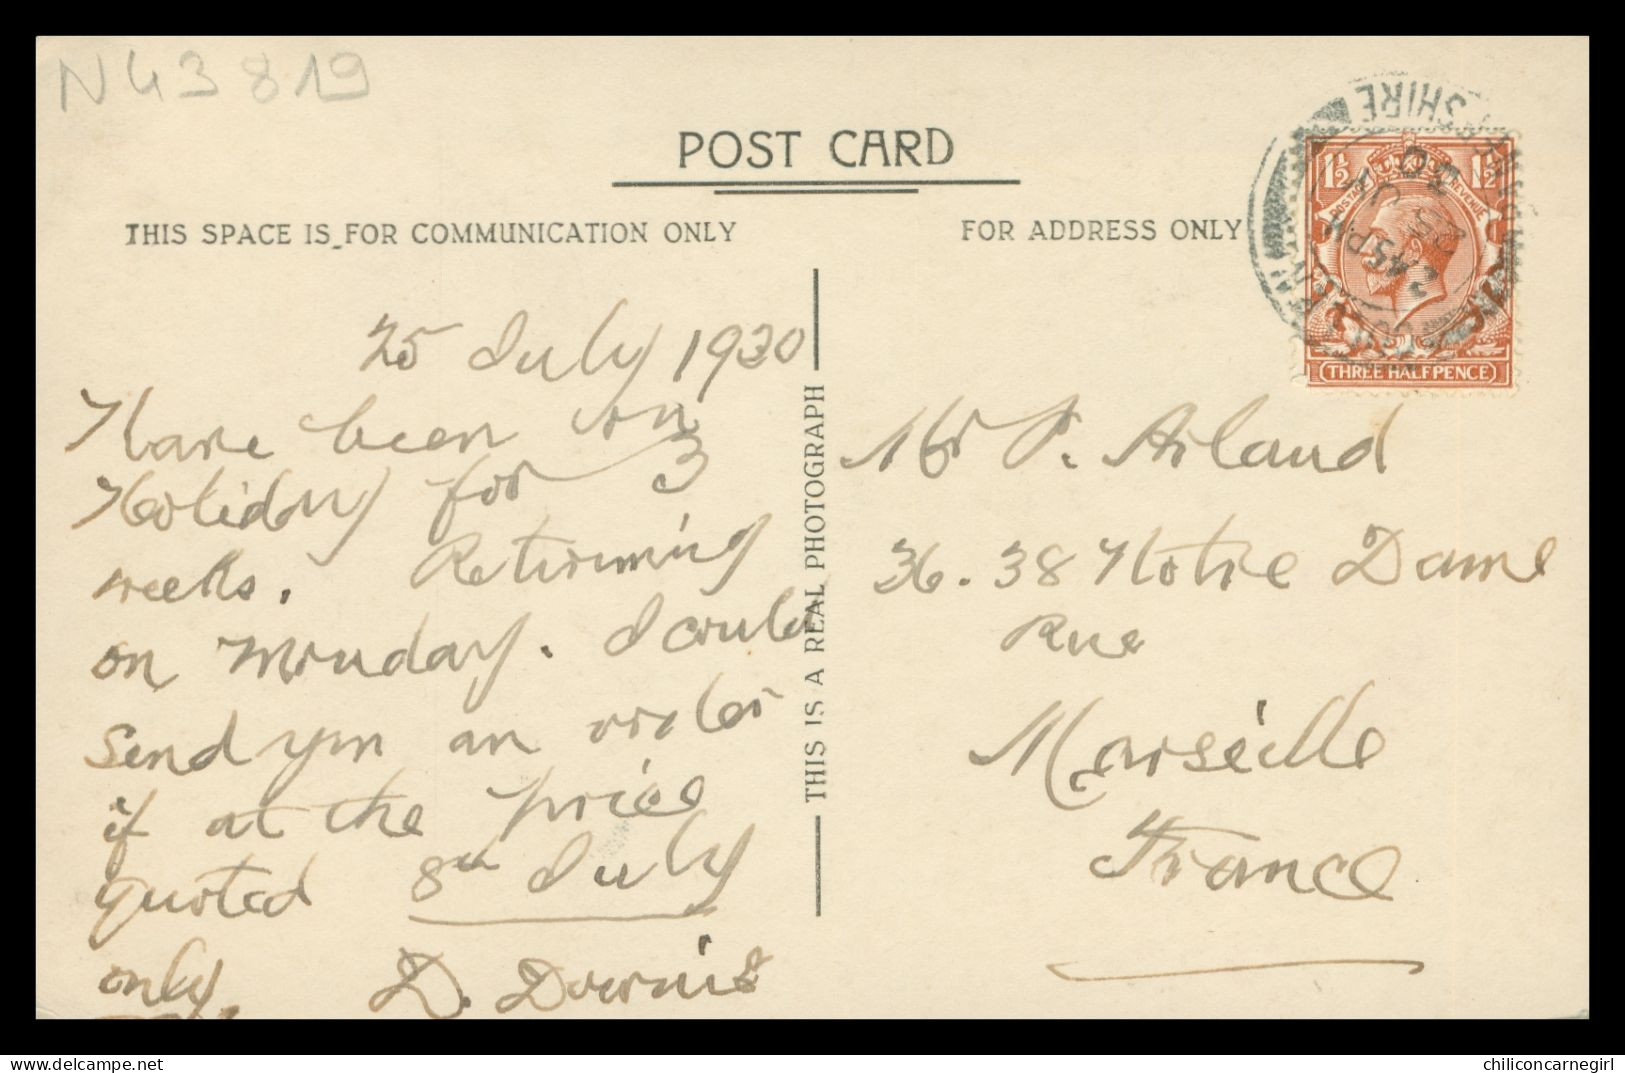 N43819
POST CARD
THIS SPACE IS FOR COMMUNICATION ONLY
FOR ADDRESS ONLY
25 July 1930
Have been on
Holiday for 3
weeks. Returning
on Monday. I could
send you an order
if at the price
quoted 8th July
only.
D. Downie
THIS IS A REAL PHOTOGRAPH
1½ 1½
POSTAGE REVENUE
THREE HALFPENCE
SHIRE
2.45 PM
25 JY
30
Mr P. Arland
36. 38 Notre Dame
Rue
Marseille
France
chiliconcarnegirl